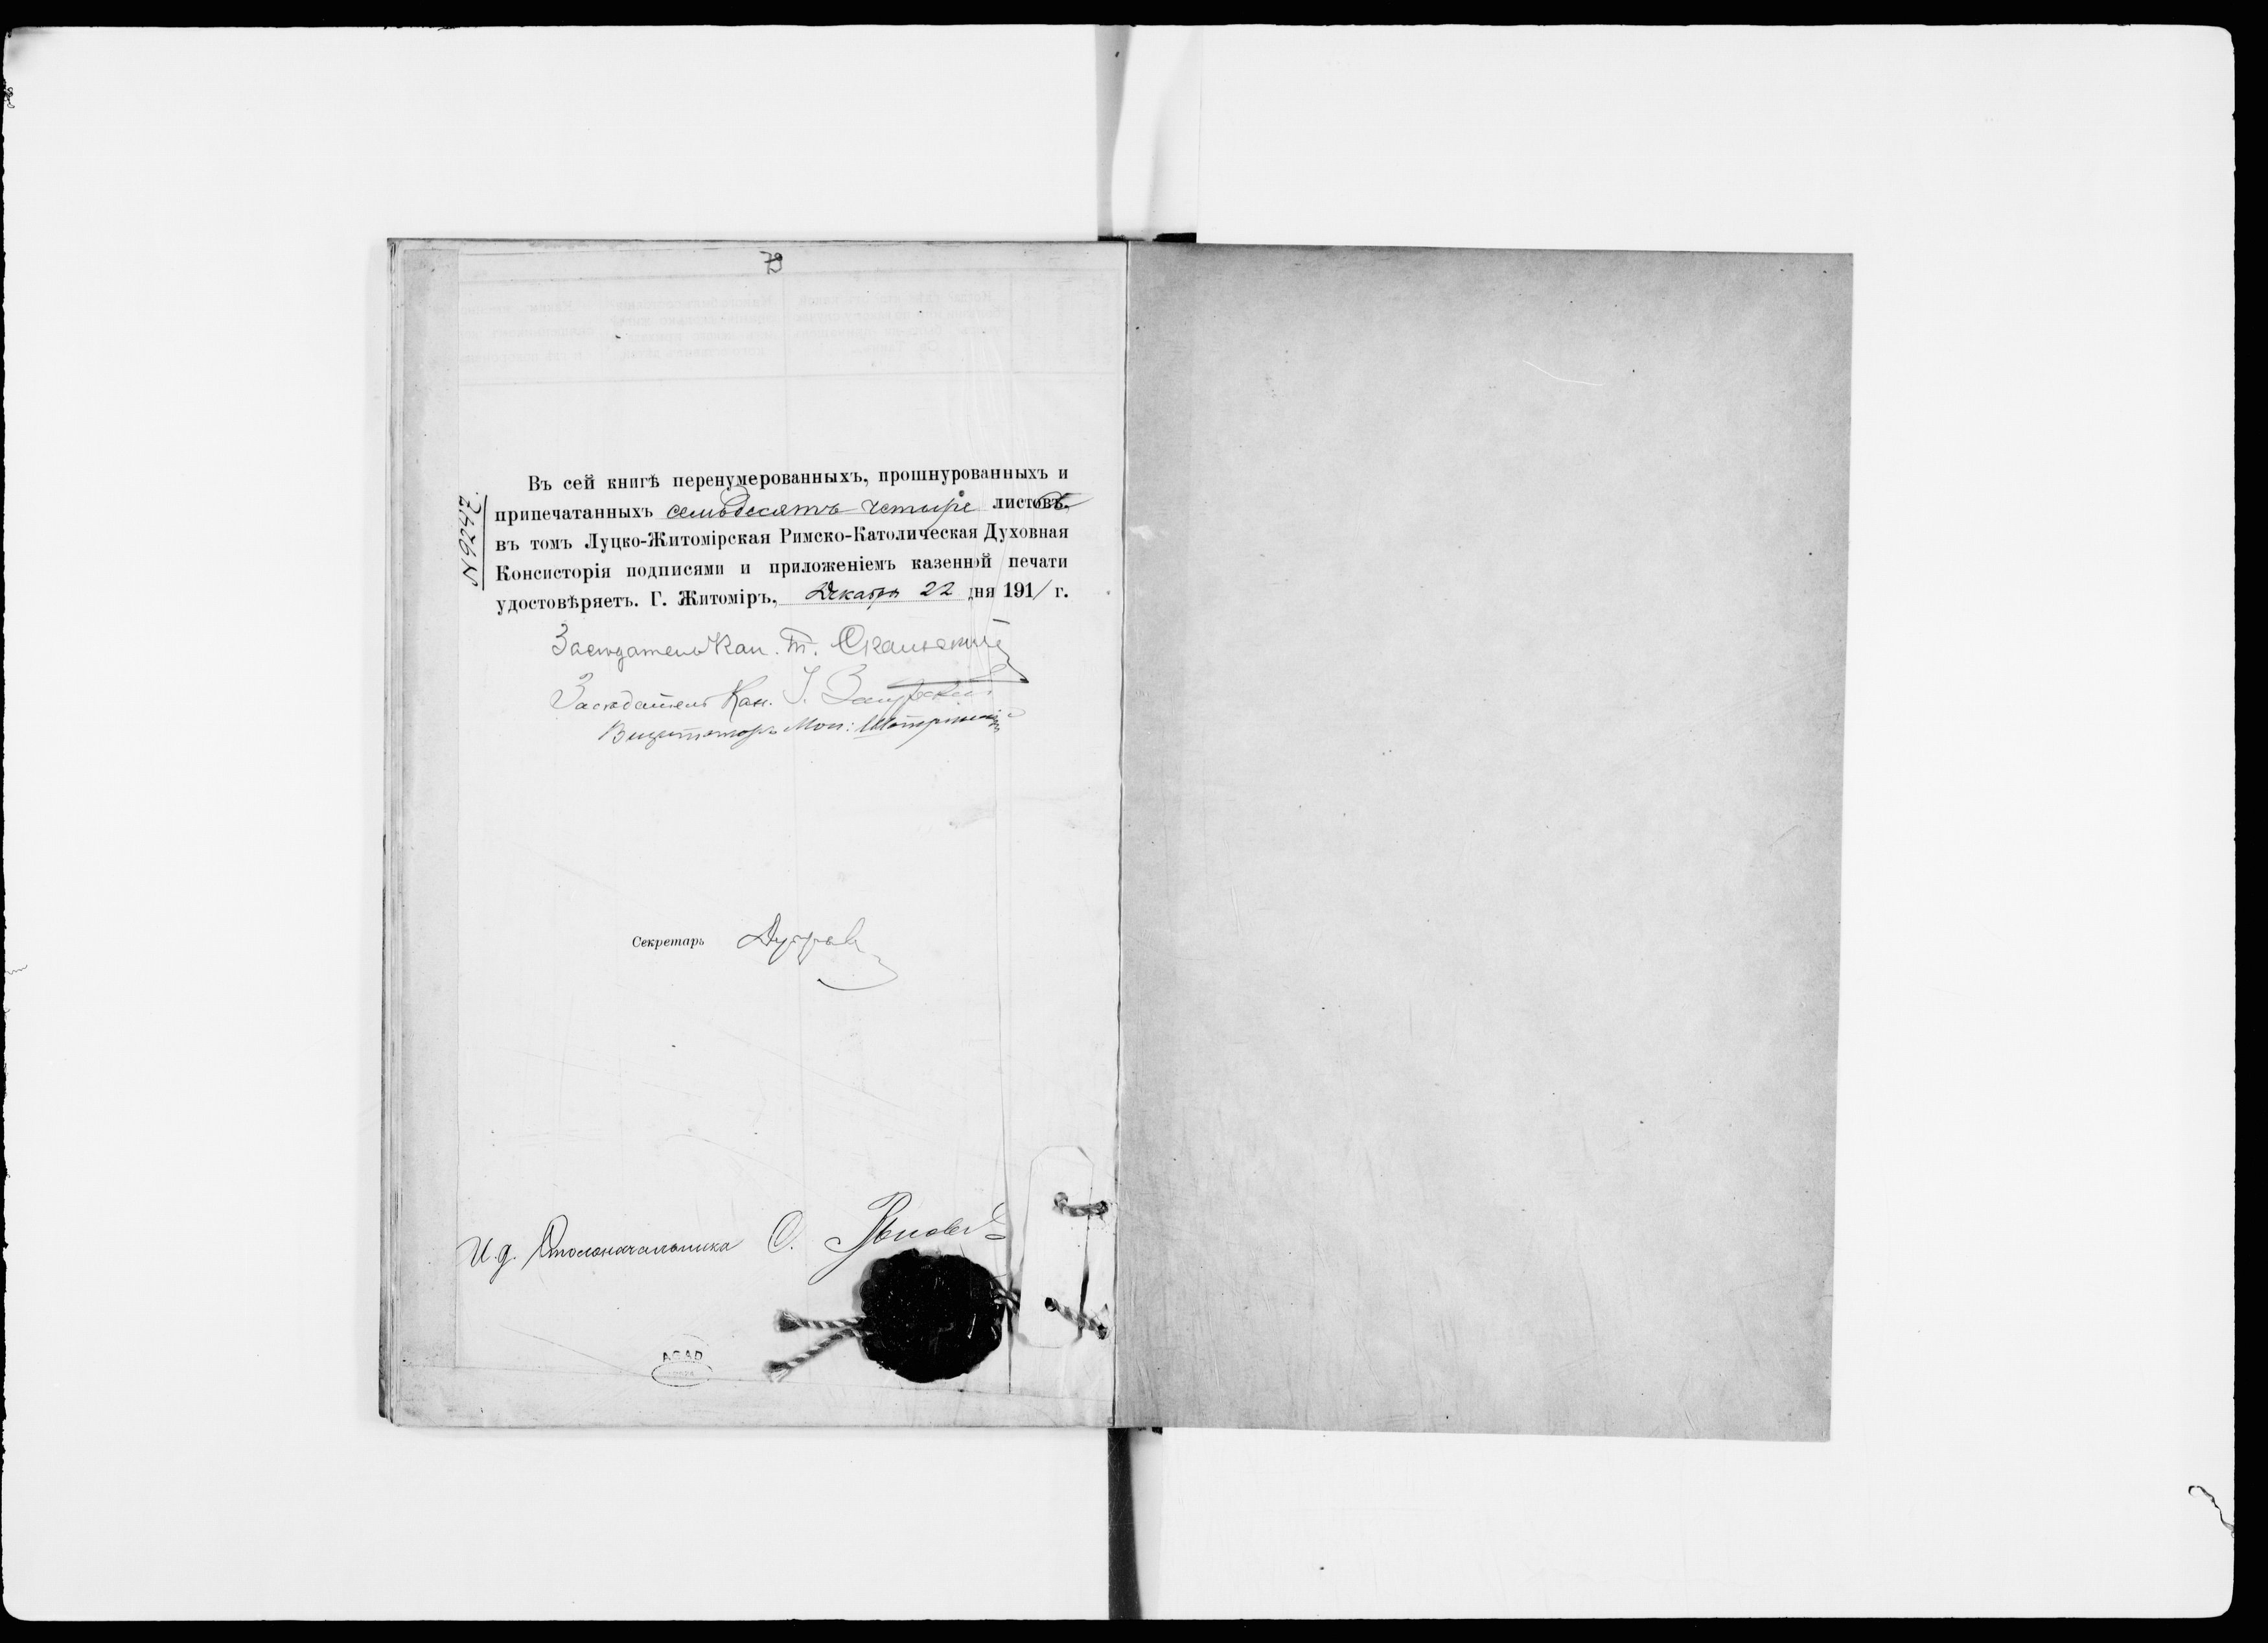 79
Въ сей книгѣ перенумерованныхъ, прошнурованныхъ и
припечатанныхъ семьдесятъ четыре листовъ
въ томъ Луцко-Житомірская Римско-Католическая Духовная
Консисторія подписями и приложеніемъ казенной печати
удостовѣряетъ. Г. Житоміръ, Декабря 22 дня 1911 г.
Засѣдатель Кан. Т. Скальскій
Засѣдатель Кан. І.
Визитаторъ Мон:
Секретарь
И. д. Столоначальника О.
AGAD